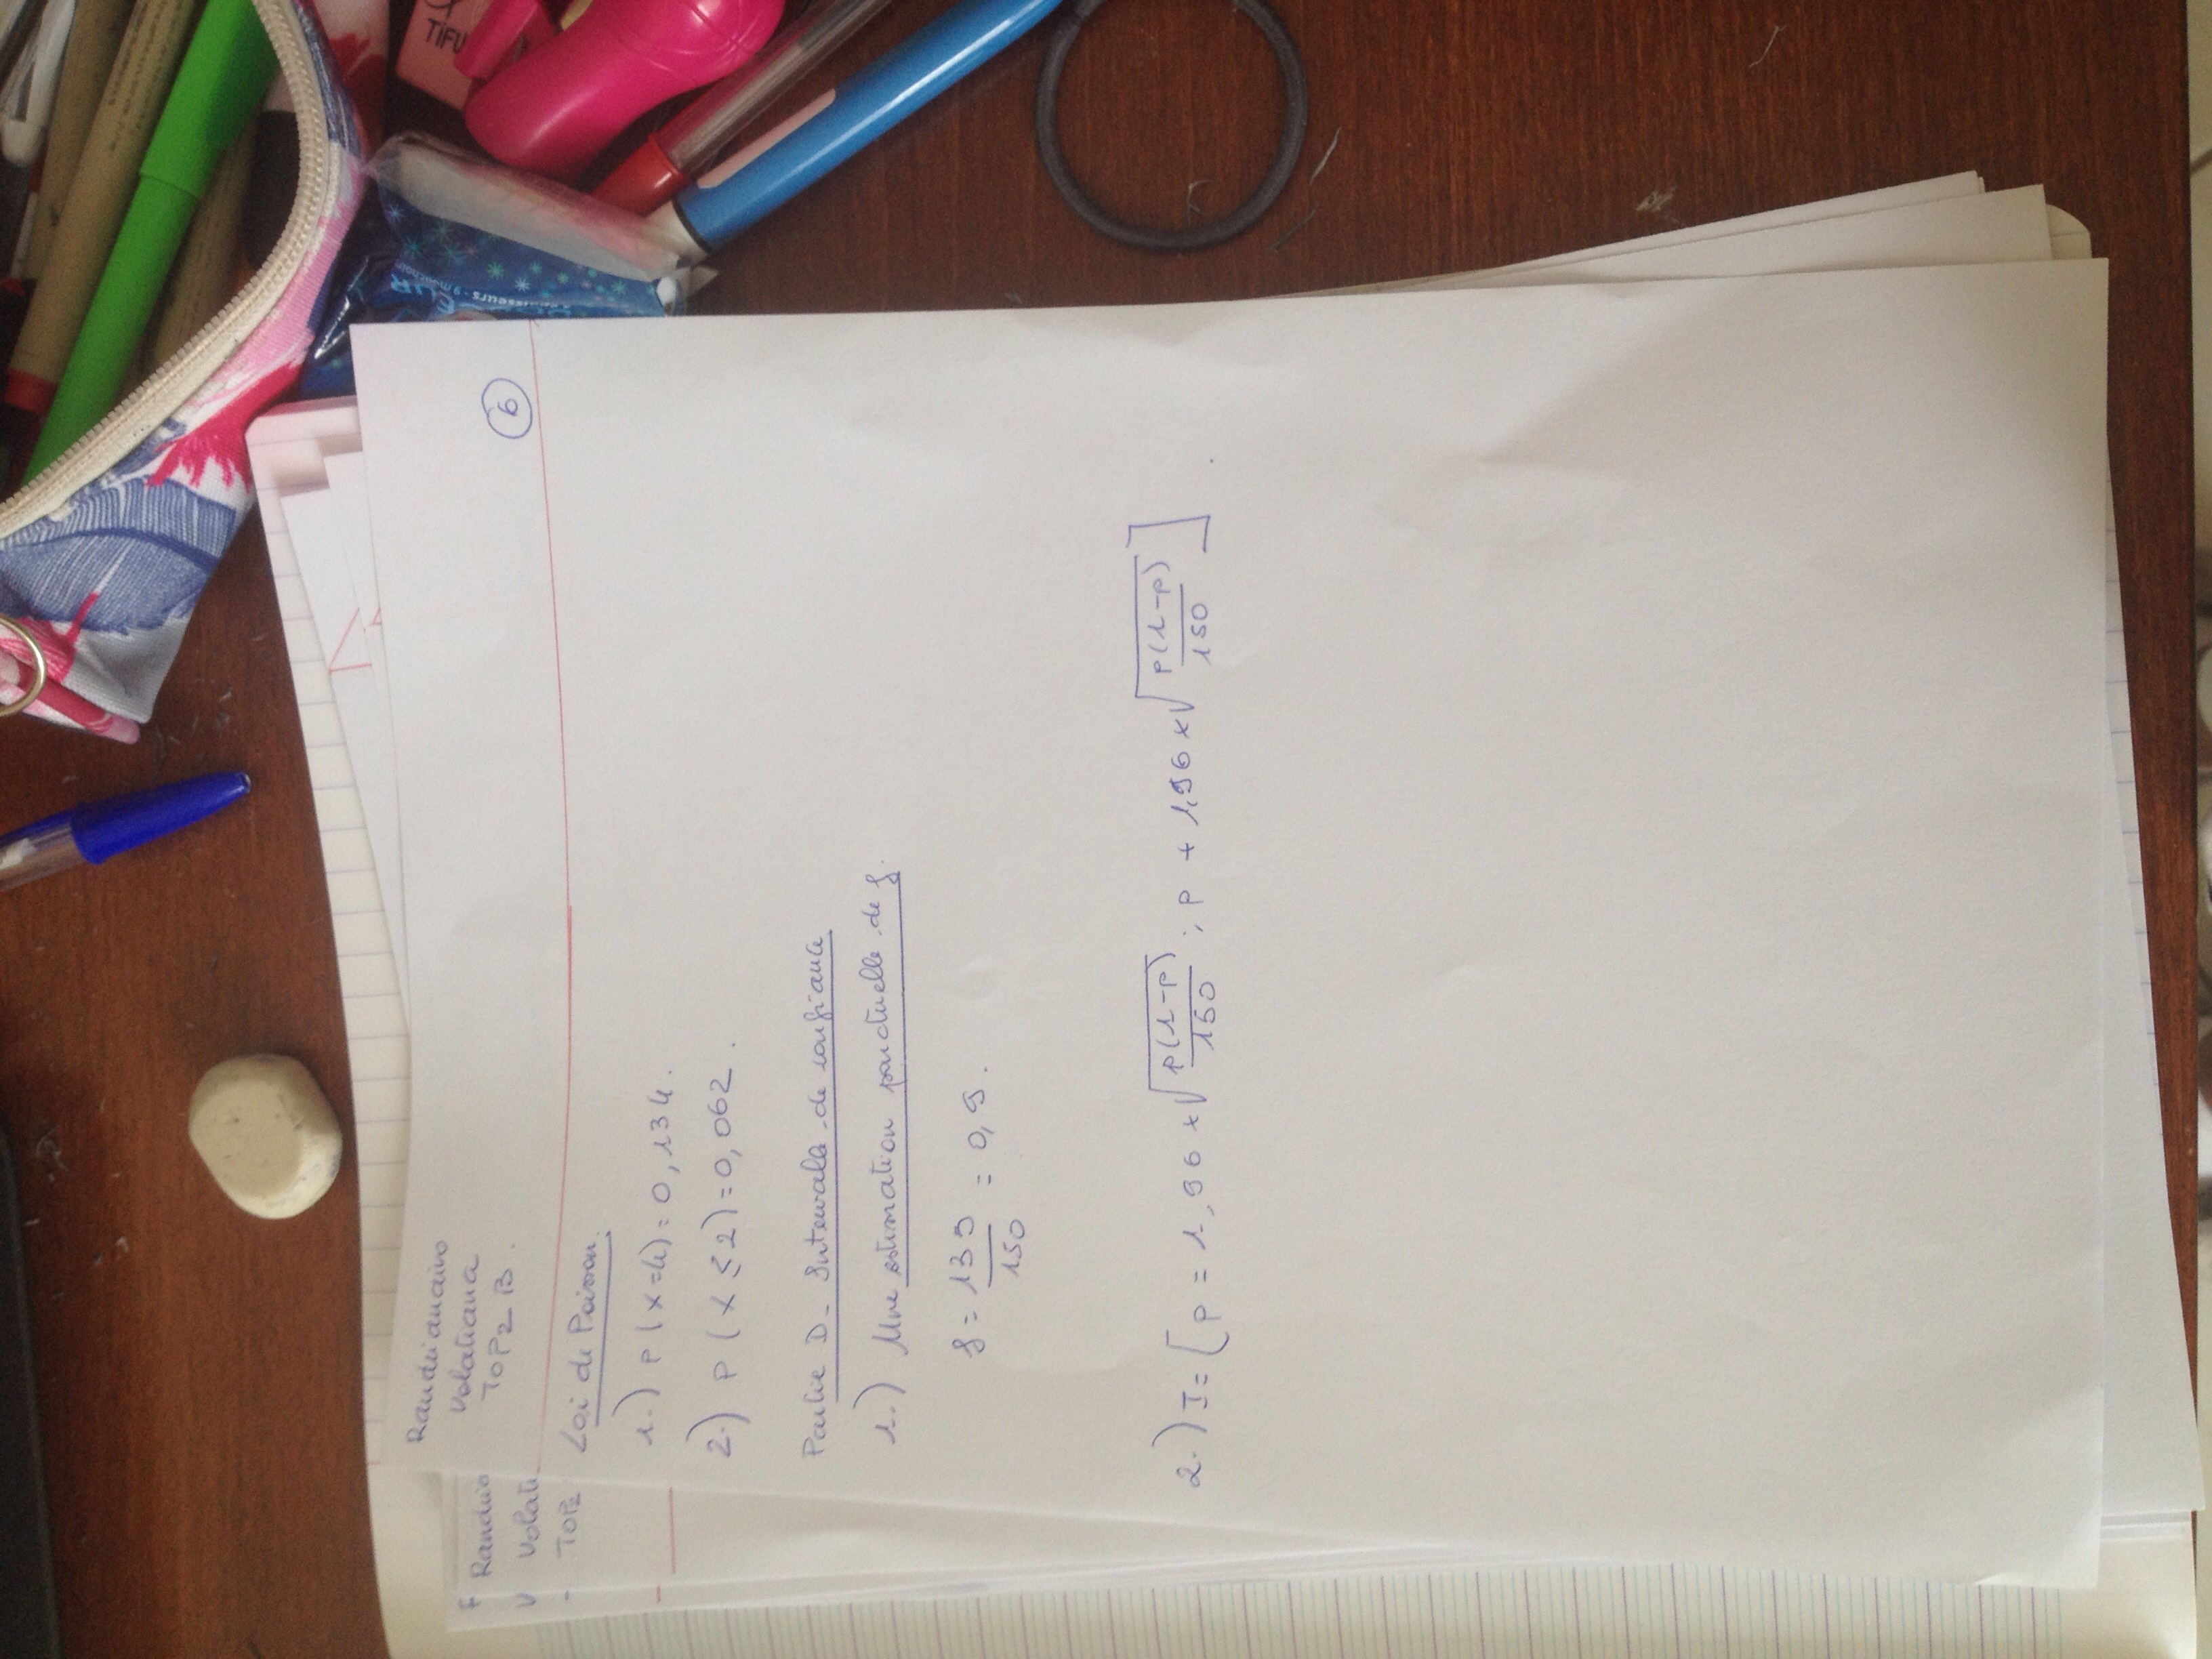 Randrianaivo
Volatiana
TOP2 B.
6
Randria
Volati
TOP2
Loi de Poisson.
1.) P(X=4)=0,134.
2.) P(X≤2)=0,062.
Partie D- Intervalle de confiance
1.) Une estimation ponctuelle de f.
f = 135/150 = 0,9.
2.) I=[p = 1,96 × √(p(1-p)/150) ; p + 1,96 × √(p(1-p)/150)].